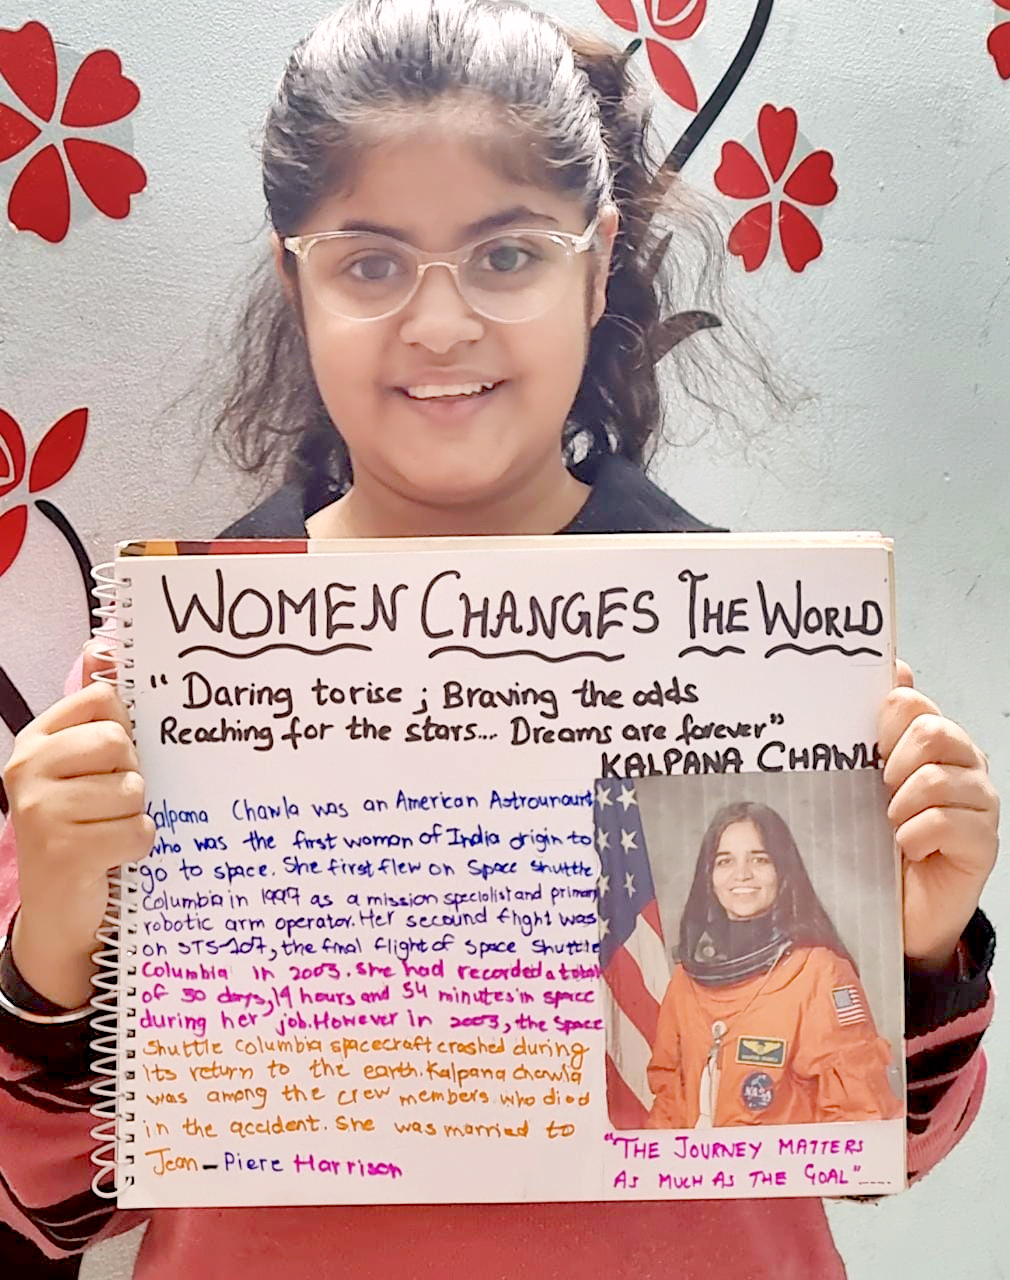 WOMEN CHANGES THE WORLD
"Daring to rise ; Braving the odds
Reaching for the stars... Dreams are forever"
KALPANA CHAWLA
Kalpana Chawla was an American Astrounaurt
who was the first woman of India origin to
go to space. She first flew on Space shuttle
Columbia in 1997 as a mission specialist and primary
robotic arm operator. Her secound flight was
on STS-107, the final flight of Space Shuttle
Columbia in 2003. She had recorded a total
of 30 days, 14 hours and 54 minutes in space
during her job. However in 2003, the Space
Shuttle Columbia spacecraft crashed during
its return to the earth. Kalpana chawla
was among the crew members who died
in the accident. She was married to
Jean-Piere Harrison
NASA
"THE JOURNEY MATTERS
AS MUCH AS THE GOAL".....